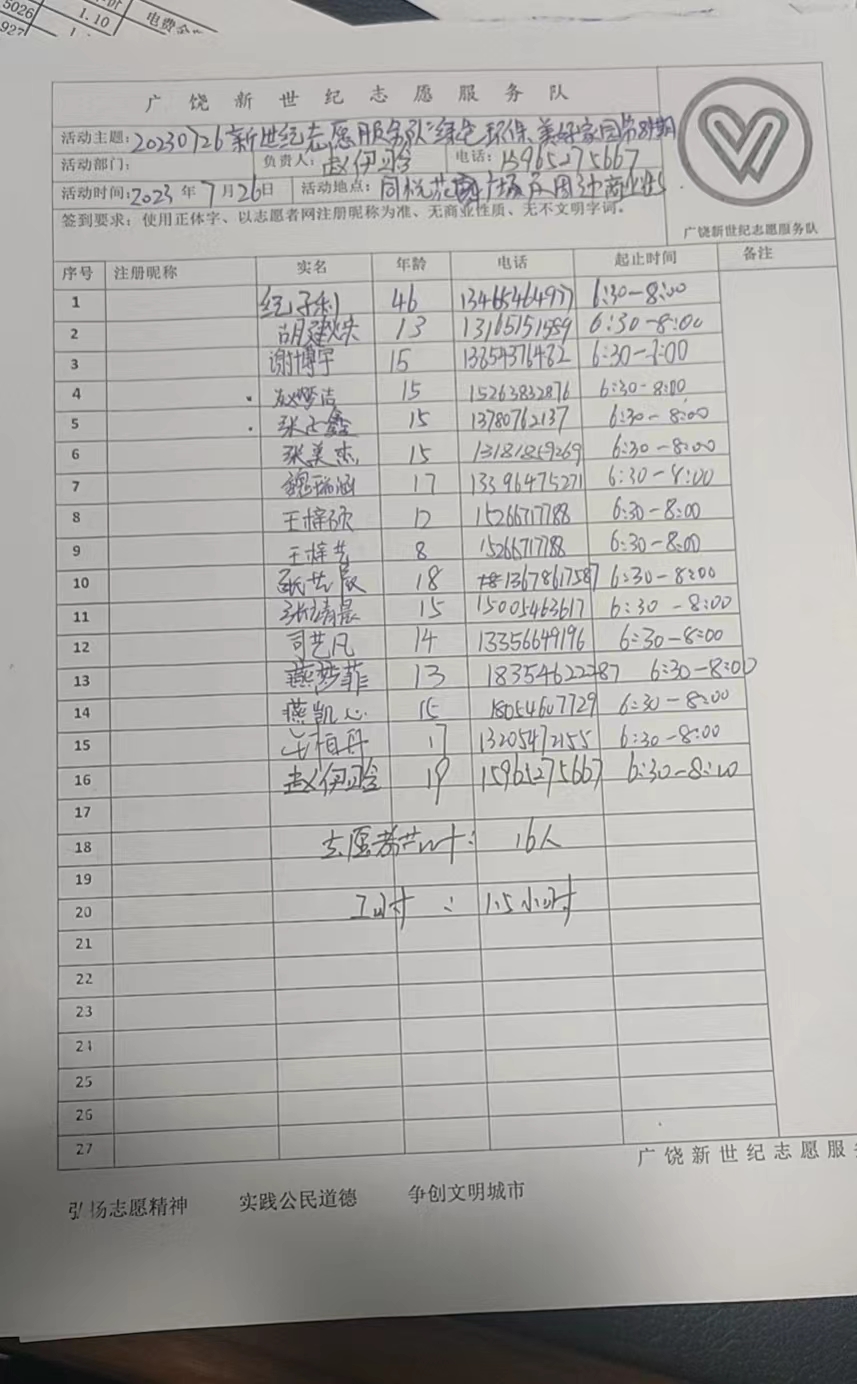 5026
1.10
电费金
927
广饶新世纪志愿服务队
活动主题:20230726新世纪志愿服务队"绿色环保 美好家园
活动部门: 负责人:赵伊晗 电话:15965275667
活动时间:2023年7月26日 活动地点:同悦花园广场及周边商业街
签到要求:使用正体字、以志愿者网注册昵称为准、无商业性质、无不文明字词。
广饶新世纪志愿服务队
序号 注册昵称 实名 年龄 电话 起止时间 备注
1 46 6:30-8:00
2 13 6:30-8:00
3 谢博宇 15 13854376482 6:30-8:00
4 赵梦洁 15 15263832876 6:30-8:00
5 15 13780762137 6:30-8:00
6 张美杰 15 13181859269 6:30-8:00
7 魏瑞涵 17 13396475271 6:30-8:00
8 王梓硕 12 15266717788 6:30-8:00
9 王梓艺 8 15266717788 6:30-8:00
10 张艺晨 18 13678617587 6:30-8:00
11 张靖晨 15 15005463617 6:30-8:00
12 司艺凡 14 13356649196 6:30-8:00
13 燕梦菲 13 18354622287 6:30-8:00
14 燕凯心 15 18054607729 6:30-8:00
15 17 13205472155 6:30-8:00
16 赵伊晗 19 15965275667 6:30-8:00
17
18 志愿者共计: 16人
19
20 工时: 1.5小时
21
22
23
24
25
26
27
广饶新世纪志愿服
弘扬志愿精神 实践公民道德 争创文明城市